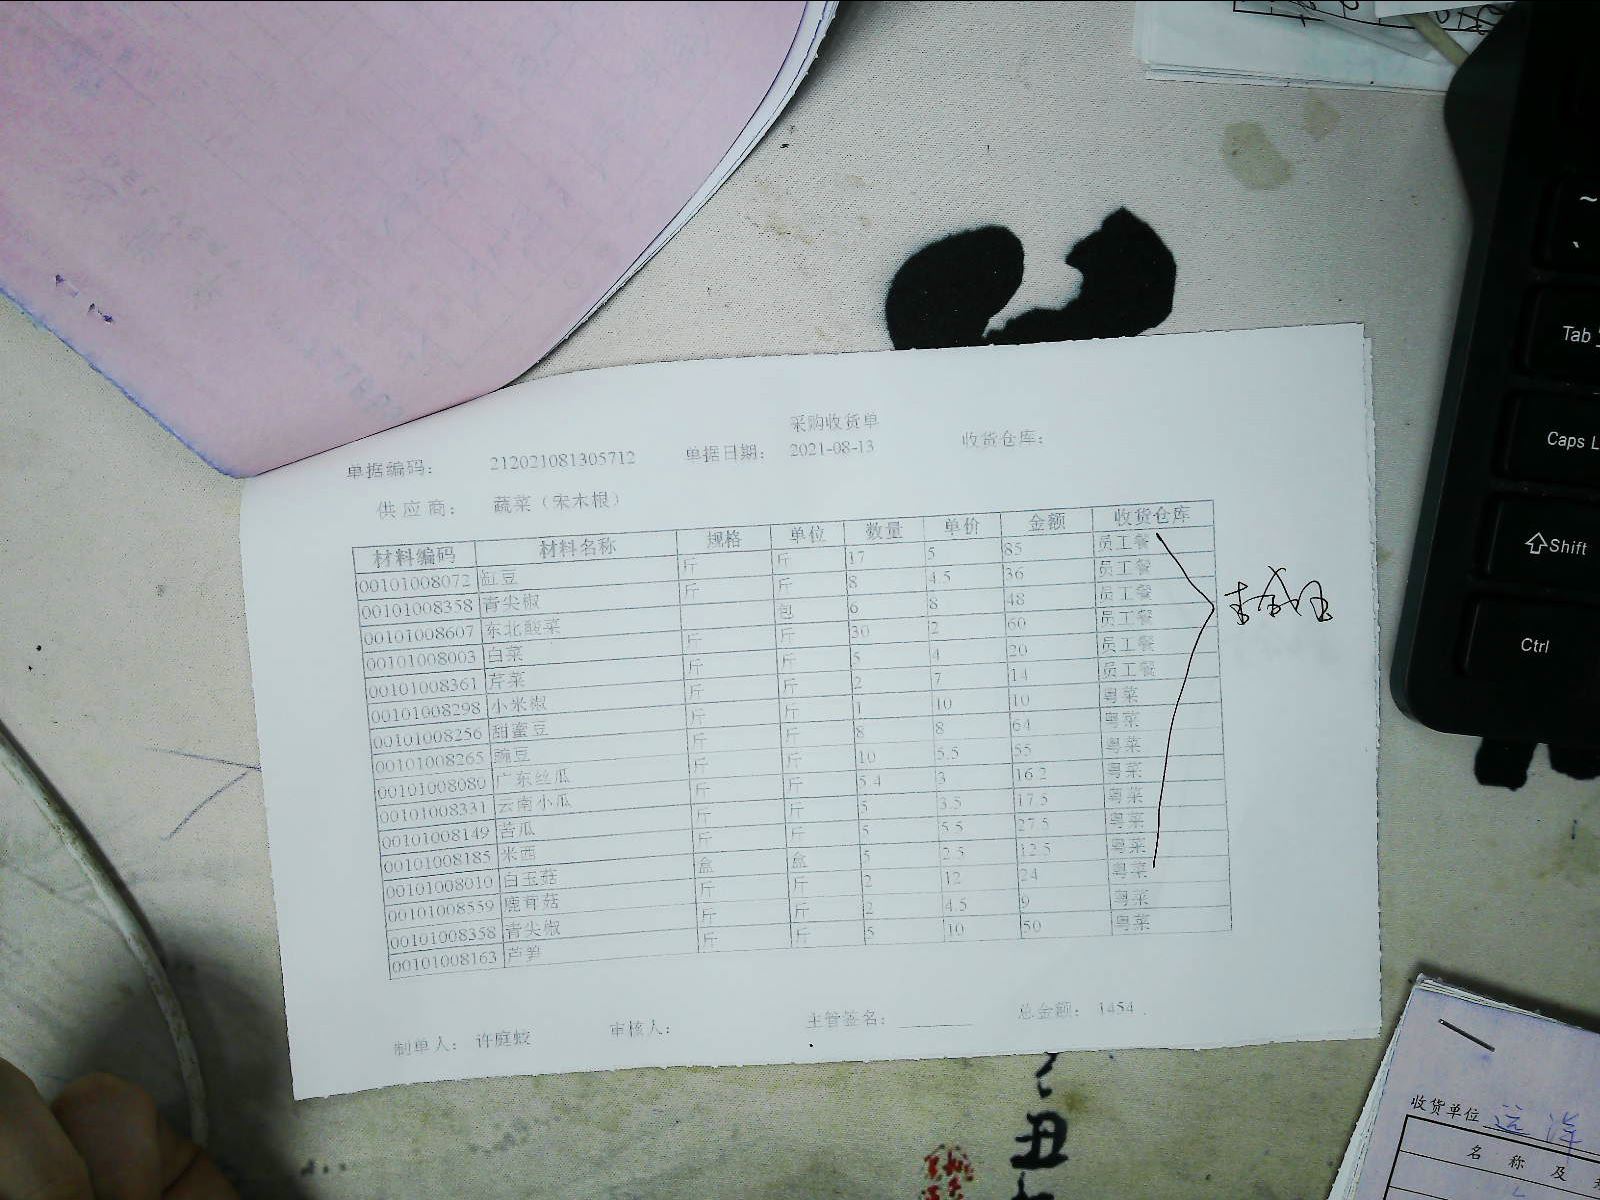 采购收货单
单据编码： 212021081305712 单据日期： 2021-08-13 收货仓库：
供应商： 蔬菜（宋木根）
材料编码 材料名称 规格 单位 数量 单价 金额 收货仓库
00101008072 缸豆 斤 斤 17 5 85 员工餐
00101008358 青尖椒 斤 斤 8 4.5 36 员工餐
00101008607 东北酸菜 包 6 8 48 员工餐
00101008003 白菜 斤 斤 30 2 60 员工餐
00101008361 芹菜 斤 斤 5 4 20 员工餐
00101008298 小米椒 斤 斤 2 7 14 员工餐
00101008256 甜蜜豆 斤 斤 1 10 10 粤菜
00101008265 豌豆 斤 斤 8 8 64 粤菜
00101008080 广东丝瓜 斤 斤 10 5.5 55 粤菜
00101008331 云南小瓜 斤 斤 5.4 3 16.2 粤菜
00101008149 苦瓜 斤 斤 5 3.5 17.5 粤菜
00101008185 米西 斤 斤 5 5.5 27.5 粤菜
00101008010 白玉菇 盒 盒 5 2.5 12.5 粤菜
00101008559 鹿茸菇 斤 斤 2 12 24 粤菜
00101008358 青尖椒 斤 斤 2 4.5 9 粤菜
00101008163 芦笋 斤 斤 5 10 50 粤菜
制单人： 许庭蛟 审核人： 主管签名： 总金额： 1454
~
`
Tab
Caps L
Shift
Ctrl
丑
收货单位 远洋
名称及